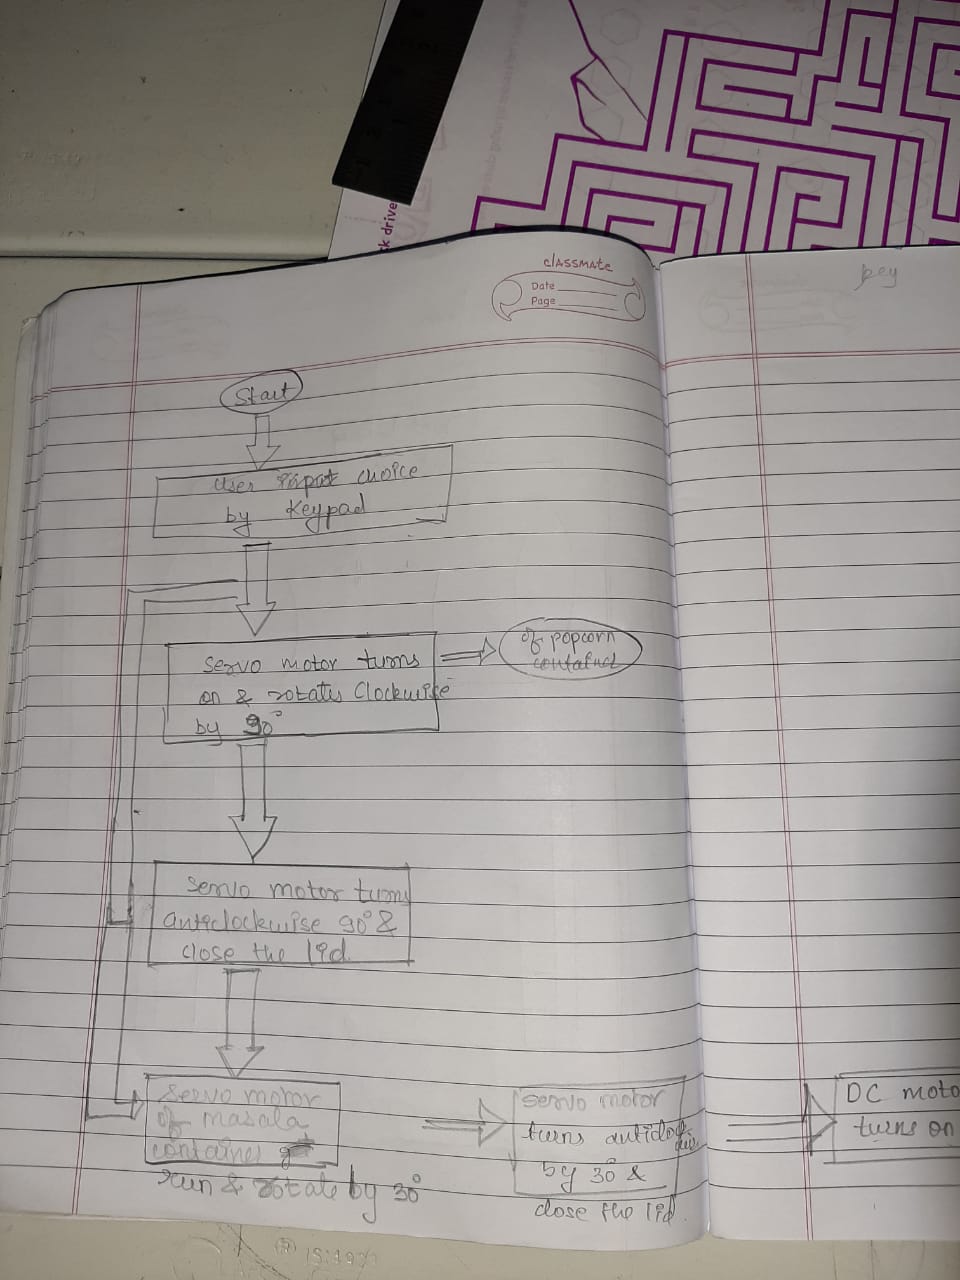 ck drive
classmate
Date
Page
pey
Start
User input choice
by Keypad
servo motor turns
on & rotates Clockwise
by 90°
of popcorn
container
servo motor turns
anticlockwise 90° &
close the lid.
servo motor
of masala
container
run & rotate by 30°
servo motor
turns anticlockwise
by 30° &
close the lid.
DC moto
turns on